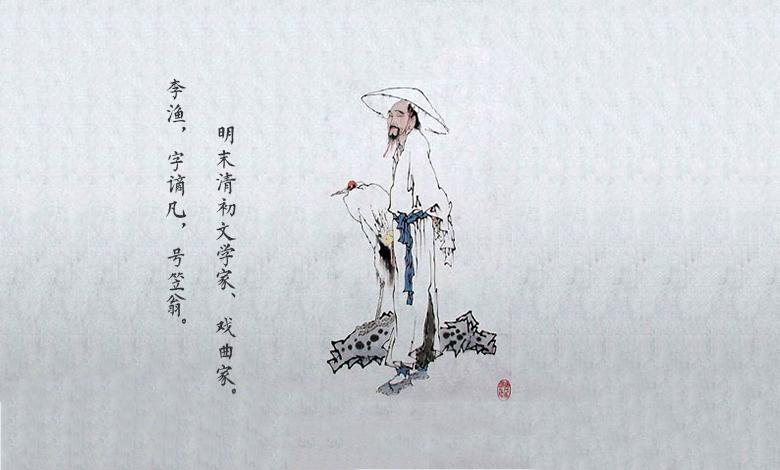 李渔，字谪凡，号笠翁。
明末清初文学家、戏曲家。